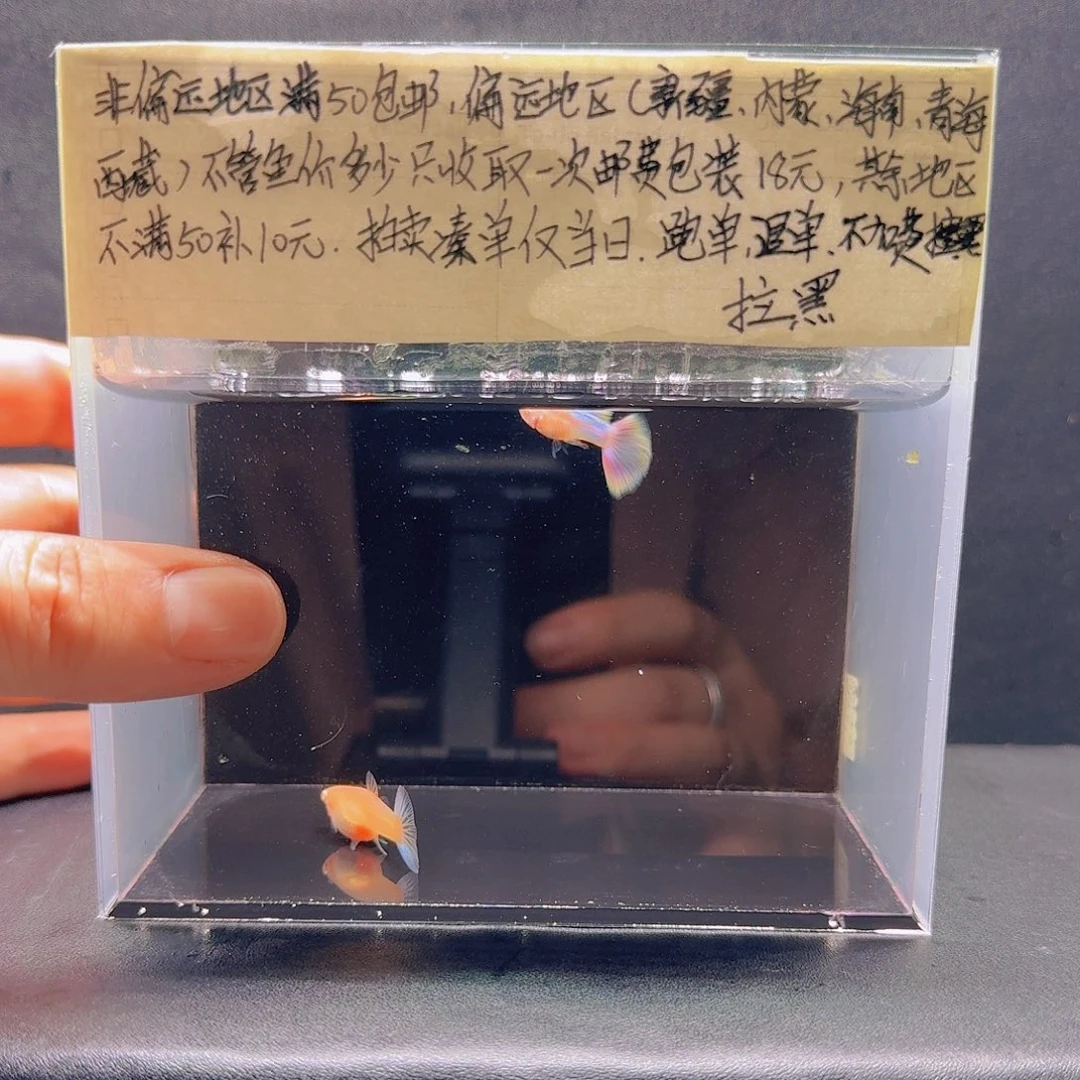 非偏远地区满50包邮,偏远地区(新疆、内蒙、海南、青海
西藏)不管鱼价多少只收取一次邮费包装18元,其余地区
不满50补10元.拍卖凑单仅当日.跑单,退单.不加费
拉黑